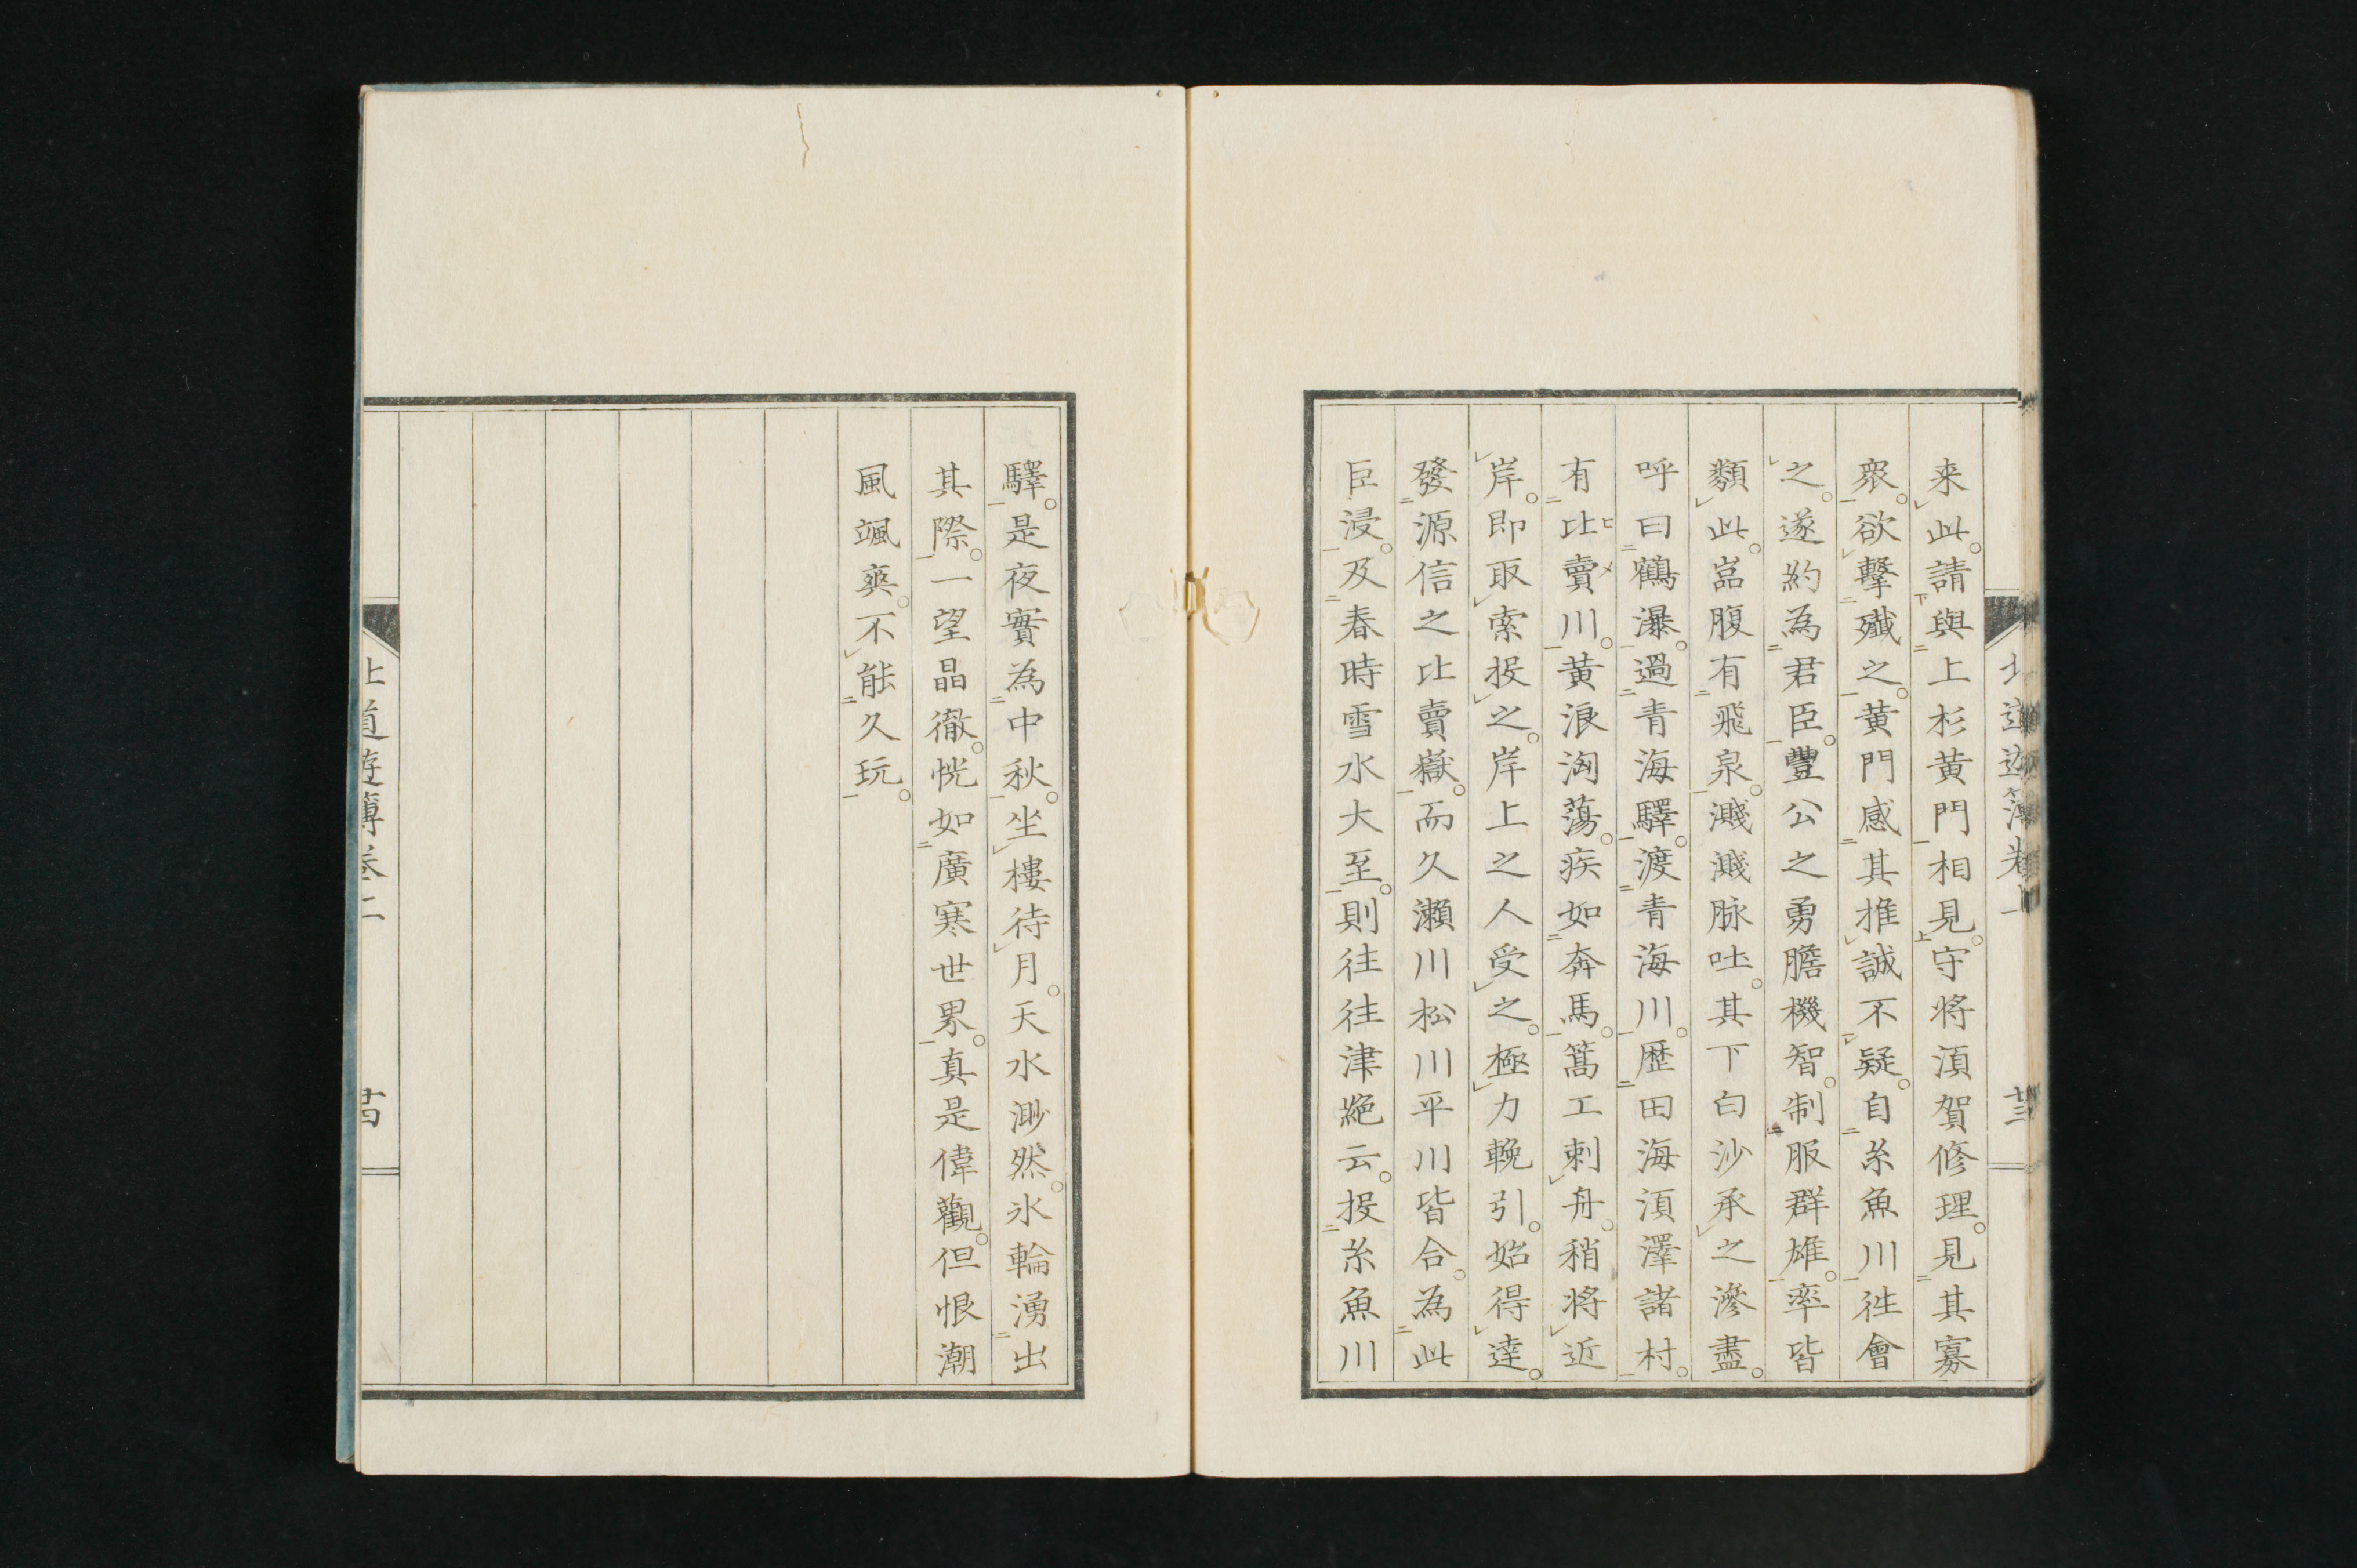 来此。請與上杉黄門相見。守将湏賀修理。見其寡
衆。欲擊殲之。黄門感其推誠不疑。自糸魚川往會
之。遂約為君臣。豐公之勇膽機智。制服群雄。率皆
類此。嵓腹有飛泉。濺濺脉吐。其下白沙承之滲盡。
呼曰鶴瀑。過青海驛。渡青海川。歴田海湏澤諸村。
有比賣川。黄浪淘蕩。疾如奔馬。篙工刺舟。稍将近
岸。即取索投之。岸上之人受之。極力輓引。始得達。
發源信之比賣嶽。而久瀬川松川平川皆合。為此
巨浸。及春時雪水大至。則往往津絶云。投糸魚川
驛。是夜實為中秋。坐樓待月。天水渺然。氷輪湧出
其際。一望晶徹。恍如廣寒世界。真是偉觀。但恨潮
風颯爽。不能久玩。
北道遊簿卷二
廿四